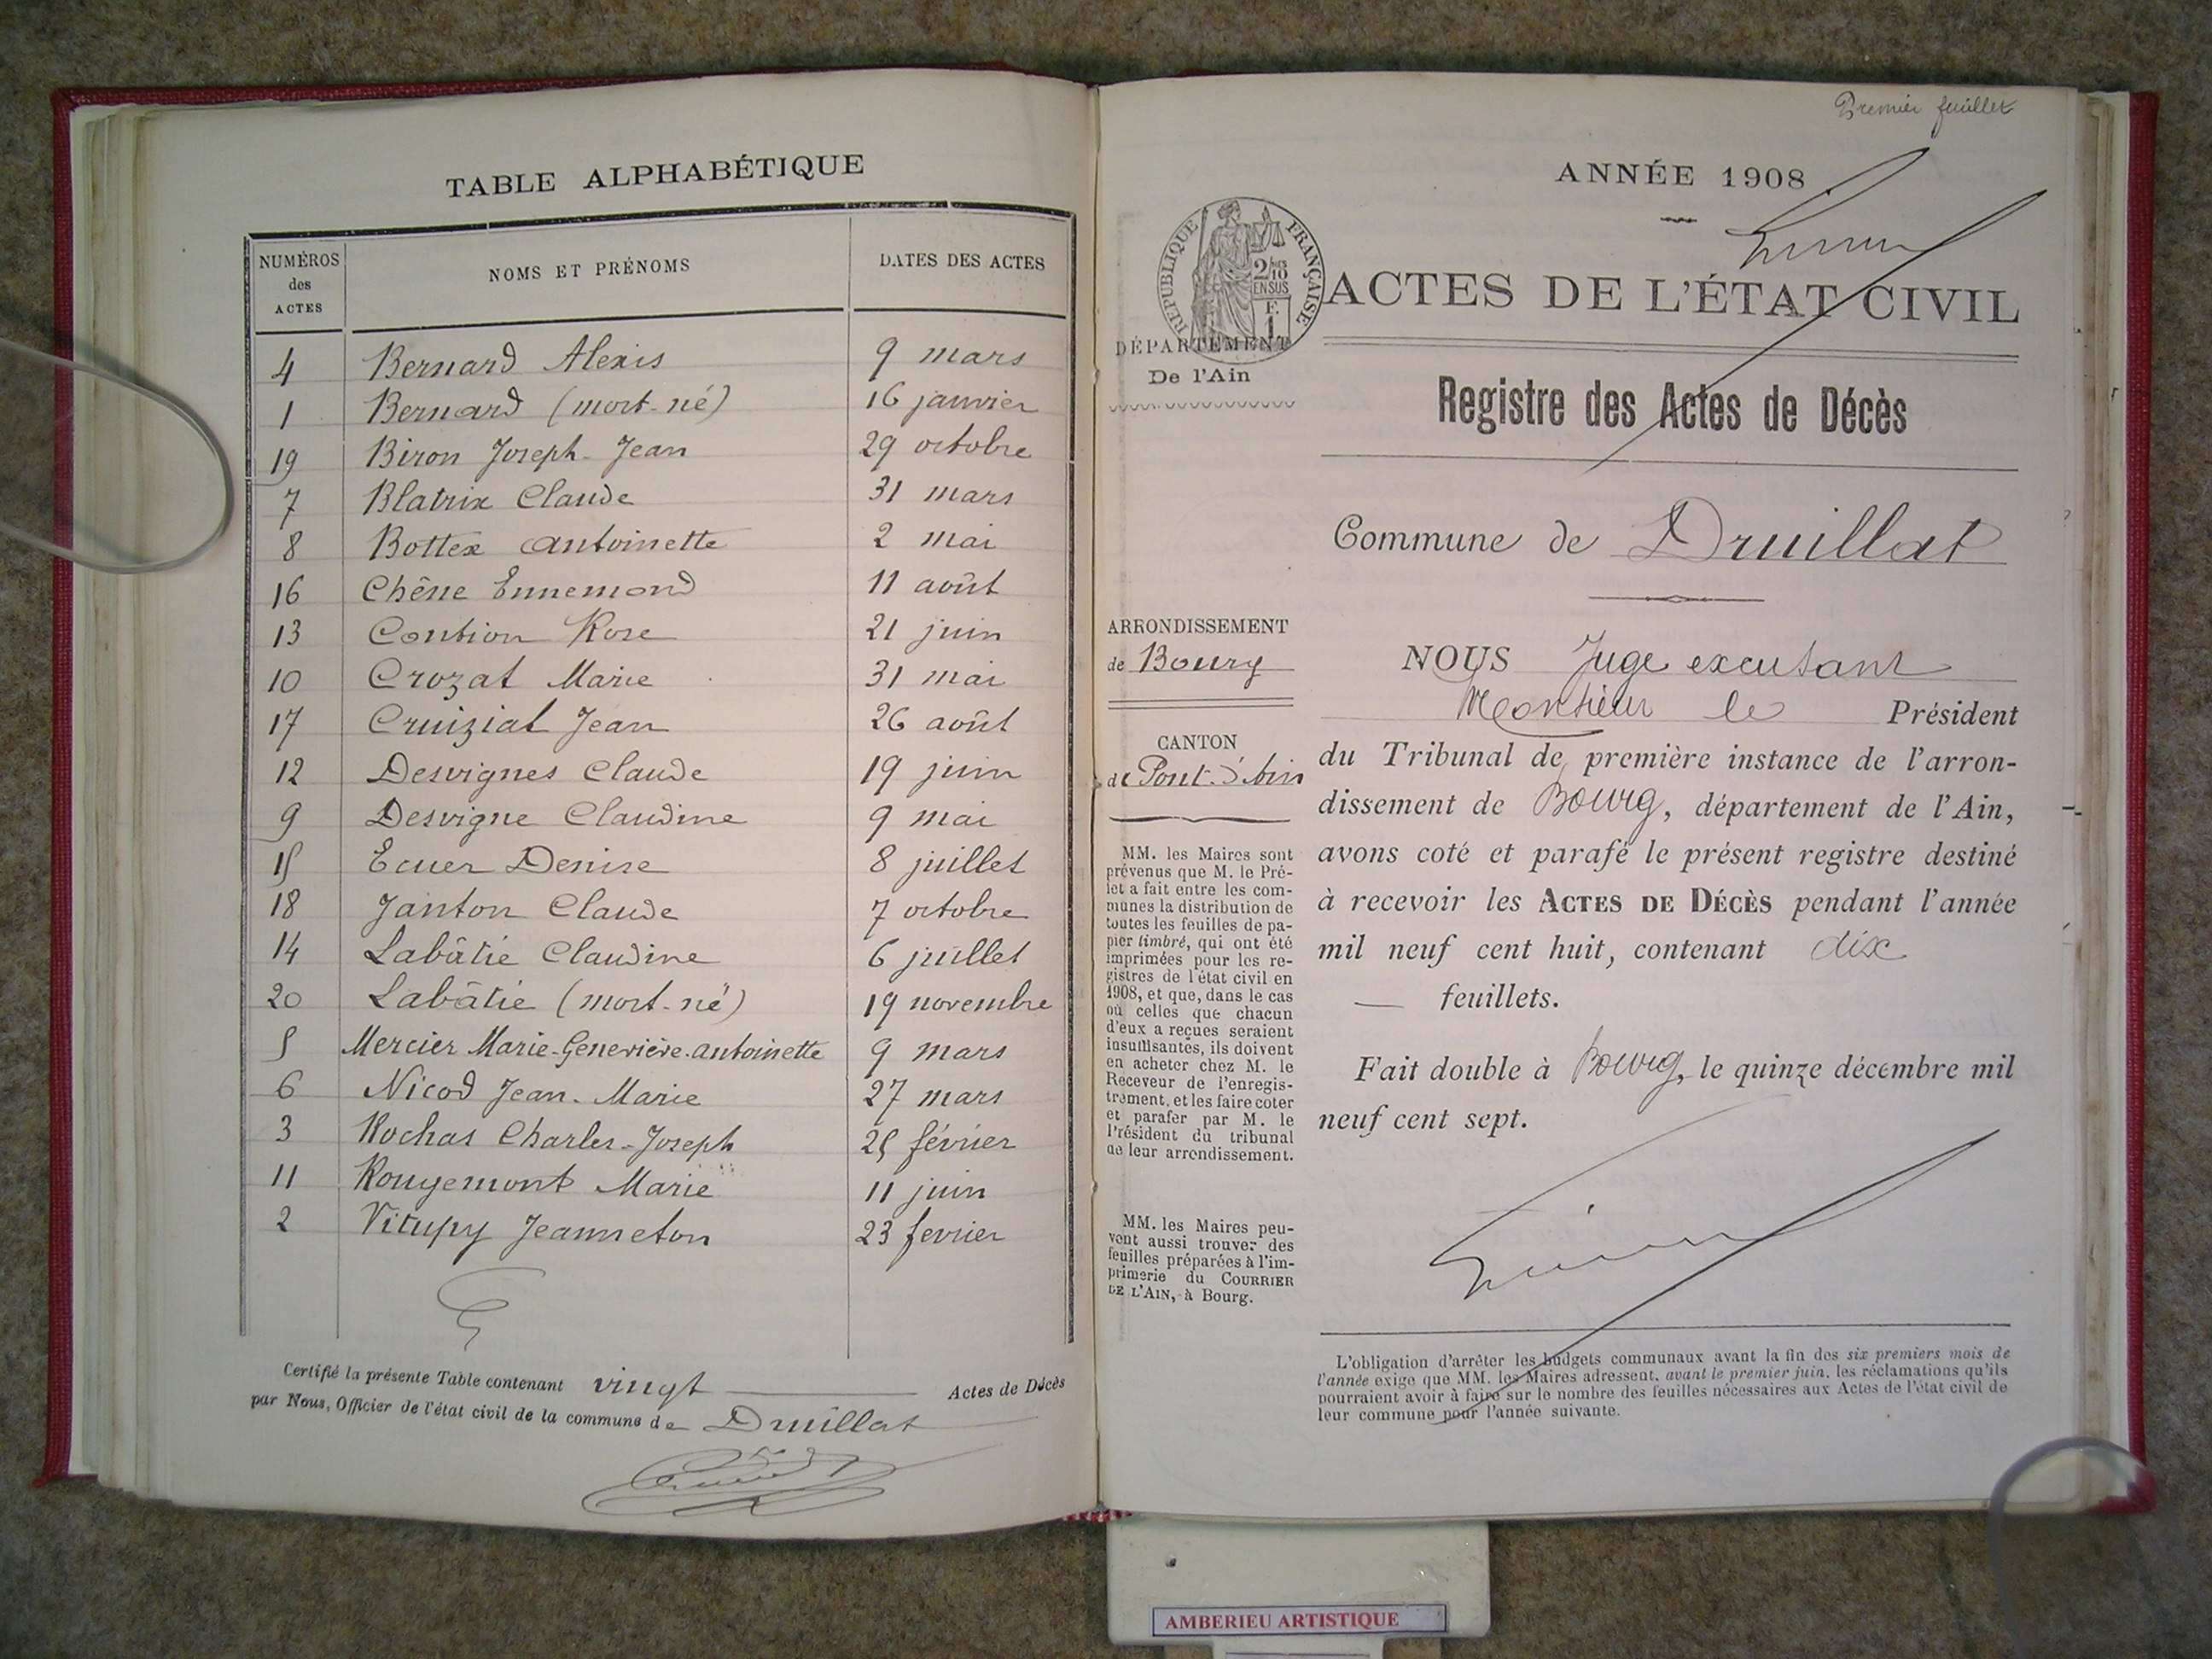 TABLE ALPHABÉTIQUE
NUMÉROS des ACTES NOMS ET PRÉNOMS DATES DES ACTES
4 Bernard Alexis 9 mars
1 Bernard (mort-né) 16 janvier
19 Biron Joseph-Jean 29 octobre
7 Blatrix Claude 31 mars
8 Bottex Antoinette 2 mai
16 Chêne Ennemond 11 août
13 Contion Rose 21 juin
10 Crozat Marie 31 mai
17 Cruiziat Jean 26 août
12 Desvignes Claude 19 juin
9 Desvigne Claudine 9 mai
15 Ecuer Denise 8 juillet
18 Janton Claude 7 octobre
14 Labâtie Claudine 6 juillet
20 Labâtie (mort-né) 19 novembre
5 Mercier Marie-Geneviève-Antoinette 9 mars
6 Nicod Jean-Marie 27 mars
3 Rochas Charles-Joseph 25 février
11 Rougemont Marie 11 juin
2 Vitupy Jeanneton 23 fevrier
Certifié la présente Table contenant vingt Actes de Décès
par Nous, Officier de l'état civil de la commune de Druillat
Premier feuillet
ANNÉE 1908
RÉPUBLIQUE FRANÇAISE
2/10
EN SUS
F.
1
ACTES DE L'ÉTAT CIVIL
DÉPARTEMENT
De l'Ain
Registre des Actes de Décès
Commune de Druillat
ARRONDISSEMENT
de Bourg
CANTON
de Pont-d'Ain
MM. les Maires sont
prévenus que M. le Pré-
fet a fait entre les com-
munes la distribution de
toutes les feuilles de pa-
pier timbré, qui ont été
imprimées pour les re-
gistres de l'état civil en
1908, et que, dans le cas
où celles que chacun
d'eux a reçues seraient
insuffisantes, ils doivent
en acheter chez M. le
Receveur de l'enregis-
trement, et les faire coter
et parafer par M. le
Président du tribunal
de leur arrondissement.
MM. les Maires peu-
vent aussi trouver des
feuilles préparées à l'im-
primerie du COURRIER
DE L'AIN, à Bourg.
NOUS Juge excusant
Monsieur le Président
du Tribunal de première instance de l'arron-
dissement de Bourg, département de l'Ain,
avons coté et parafé le présent registre destiné
à recevoir les ACTES DE DÉCÈS pendant l'année
mil neuf cent huit, contenant dix
— feuillets.
Fait double à Bourg, le quinze décembre mil
neuf cent sept.
L'obligation d'arrêter les budgets communaux avant la fin des six premiers mois de
l'année exige que MM. les Maires adressent, avant le premier juin, les réclamations qu'ils
pourraient avoir à faire sur le nombre des feuilles nécessaires aux Actes de l'état civil de
leur commune pour l'année suivante.
AMBERIEU ARTISTIQUE